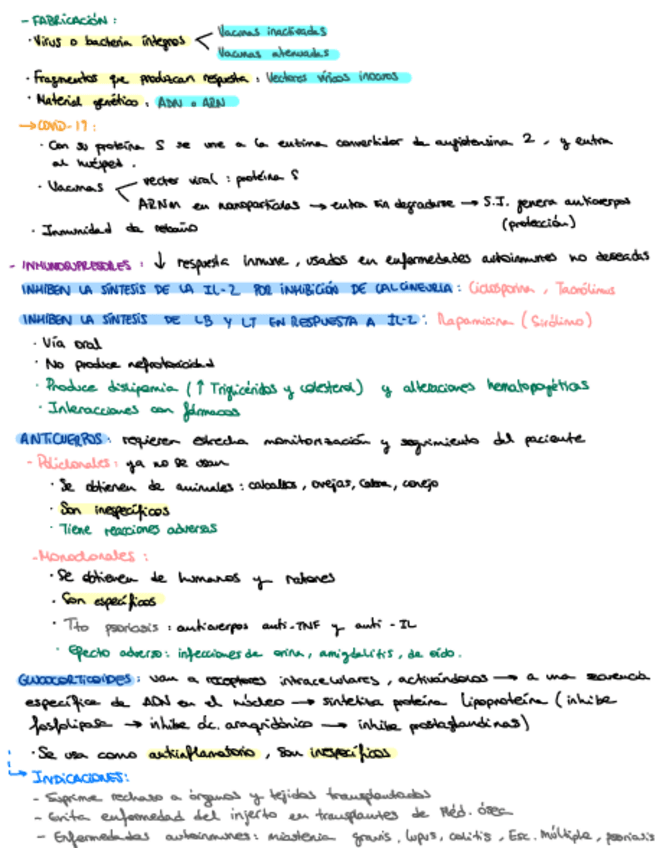 - FABRICACIÓN :
· Virus o bacteria íntegros < Vacunas inactivadas
Vacunas atenuadas
· Fragmentos que produzcan respuesta : Vectores víricos inocuos
· Material genético : ADN o ARN
→ COVID-19 :
· Con su proteína S se une a la enzima convertidor de angiotensina 2 , y entra
al huésped .
· Vacunas < vector viral : proteína S
ARNm en nanopartículas → entra sin degradarse → S.I. genera anticuerpos
(protección)
· Inmunidad de rebaño
- INMUNOSUPRESORES : ↓ respuesta inmune , usados en enfermedades autoinmunes no deseadas
INHIBEN LA SÍNTESIS DE LA IL-2 POR INHIBICIÓN DE CALCINEURIA : Ciclosporina , Tacrólimus
INHIBEN LA SÍNTESIS DE LB Y LT EN RESPUESTA A IL-2 : Rapamicina ( Sirólimo )
· Vía oral
· No produce nefrotoxicidad
· Produce dislipemia ( ↑ Triglicéridos y colesterol ) y alteraciones hematopoyéticas
· Interacciones con fármacos
ANTICUERPOS : requieren estrecha monitorización y seguimiento del paciente
- Policlonales : ya no se usan
· Se obtienen de animales : caballos , ovejas, cabra , conejo
· Son inespecíficos
· Tiene reacciones adversas
- Monoclonales :
· Se obtienen de humanos y ratones
· Son específicos
· Tto psoriasis : anticuerpos anti-TNF y anti - IL
· Efecto adverso : infecciones de orina , amigdalitis , de oído .
GLUCOCORTICOIDES : van a receptores intracelulares , activándolos → a una secuencia
específica de ADN en el núcleo → sintetiza proteína lipoproteína ( inhibe
fosfolipasa → inhibe ác. araquidónico → inhibe prostaglandinas )
· Se usa como antiinflamatorio , son inespecíficos
→ INDICACIONES :
- Suprime rechazo a órganos y tejidos transplantados
- Evita enfermedad del injerto en transplantes de Méd. ósea
- Enfermedades autoinmunes : miastenia gravis , lupus , colitis , Esc. Múltiple , psoriasis